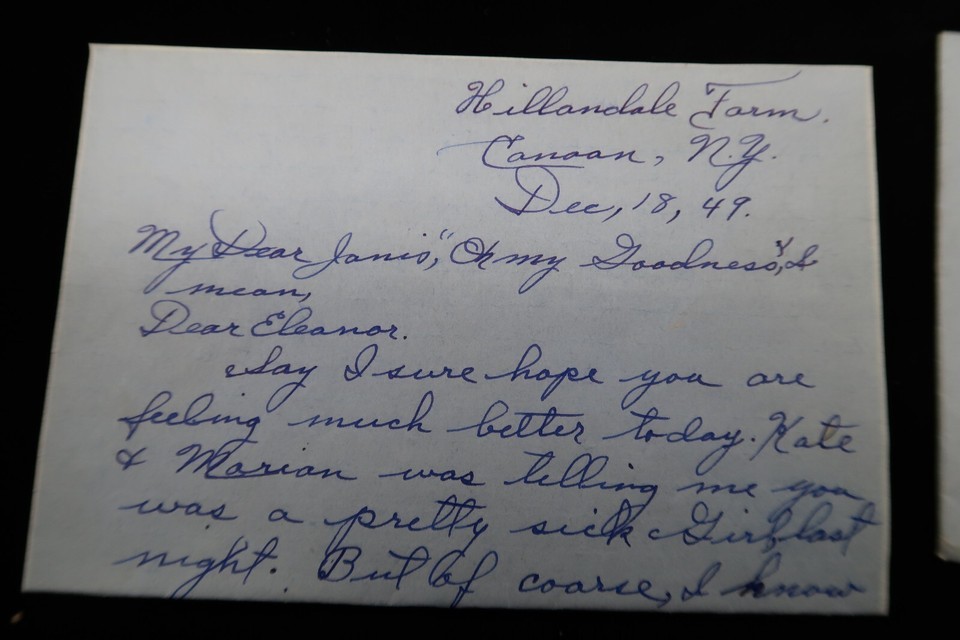 Hillandale Farm.
Canaan, N.Y.
Dec, 18, 49.
My Dear Janis, "Oh my Goodness", I
mean,
Dear Eleanor.
Say I sure hope you are
feeling much better today. Kate
& Marian was telling me you
was a pretty sick Girl last
night. But of coarse, I know